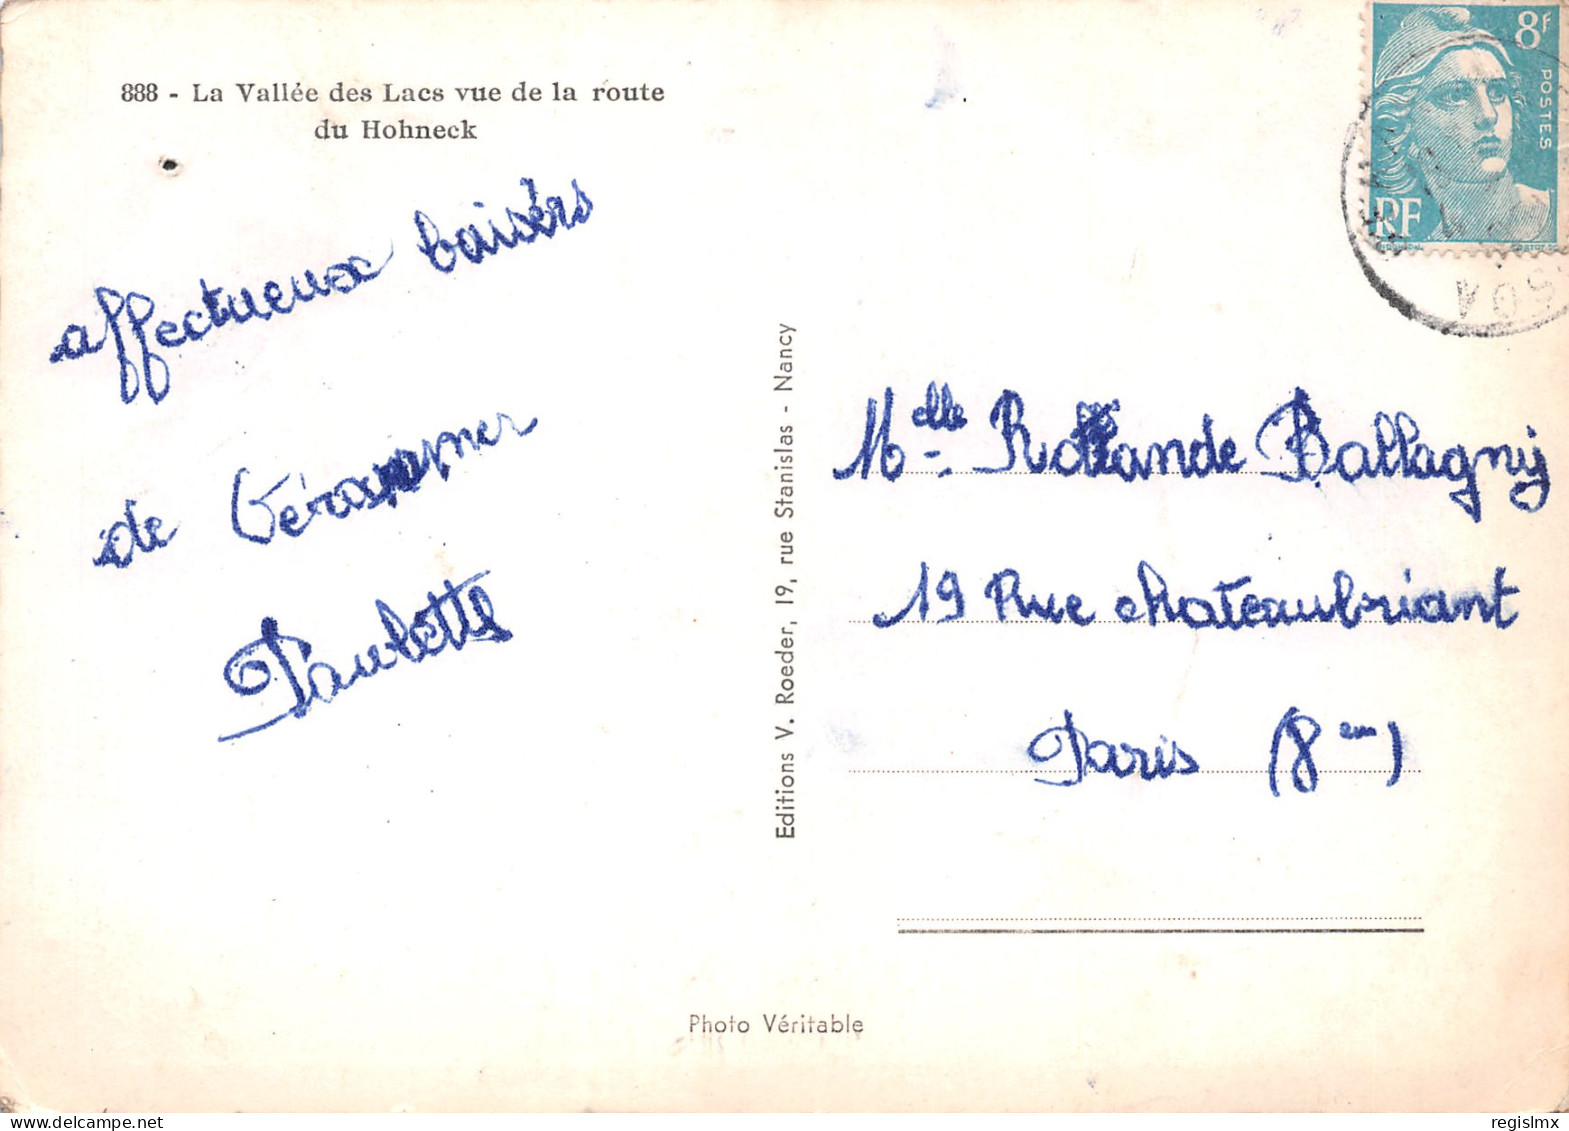 888 - La Vallée des Lacs vue de la route
du Hohneck
affectueux baisers
de Gérardmer
Paulette
Editions V. Roeder, 19, rue Stanislas - Nancy
8F
POSTES
RF
Melle Rolande Ballagny
19 Rue chateaubriant
Paris (8em)
Photo Véritable
regislmx